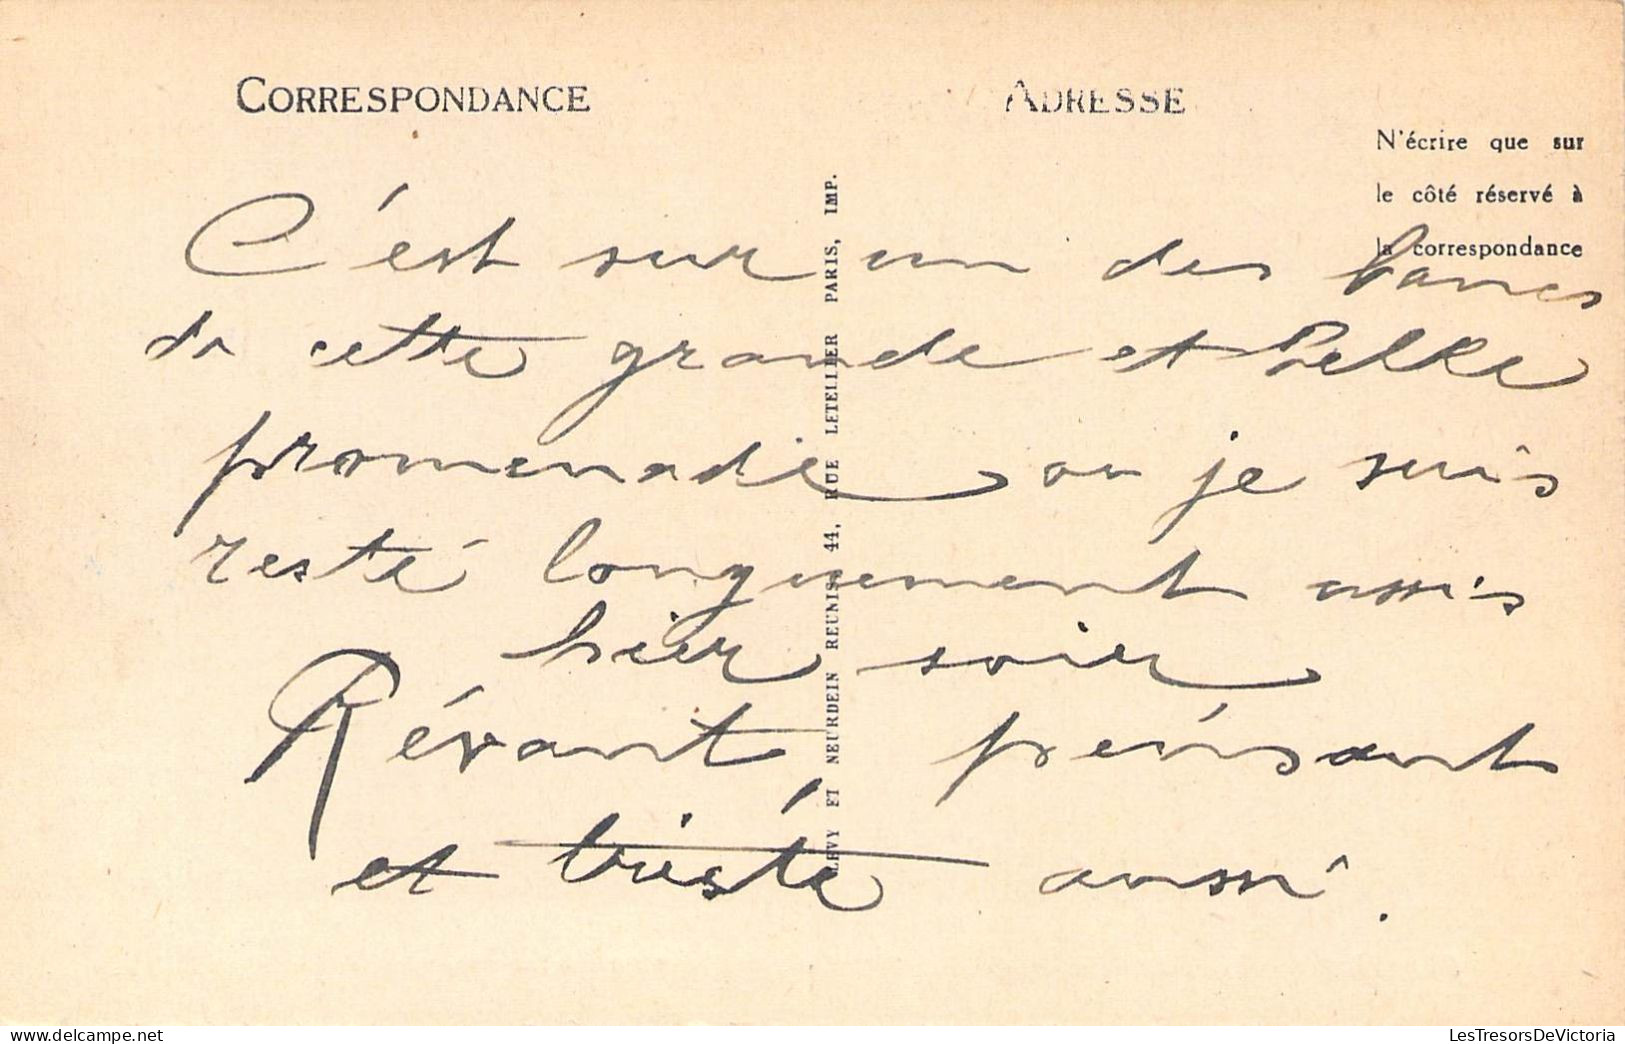 CORRESPONDANCE
ADRESSE
N'écrire que sur
le côté réservé à
la correspondance
C'est sur un des bancs
de cette grande et belle
promenade ou je suis
resté longuement assis
hier soir
Rêvant, pensant
et triste aussi.
LEVY ET NEURDEIN REUNIS, 44, RUE LETELLIER PARIS, IMP.
LesTresorsDeVictoria
www.delcampe.net